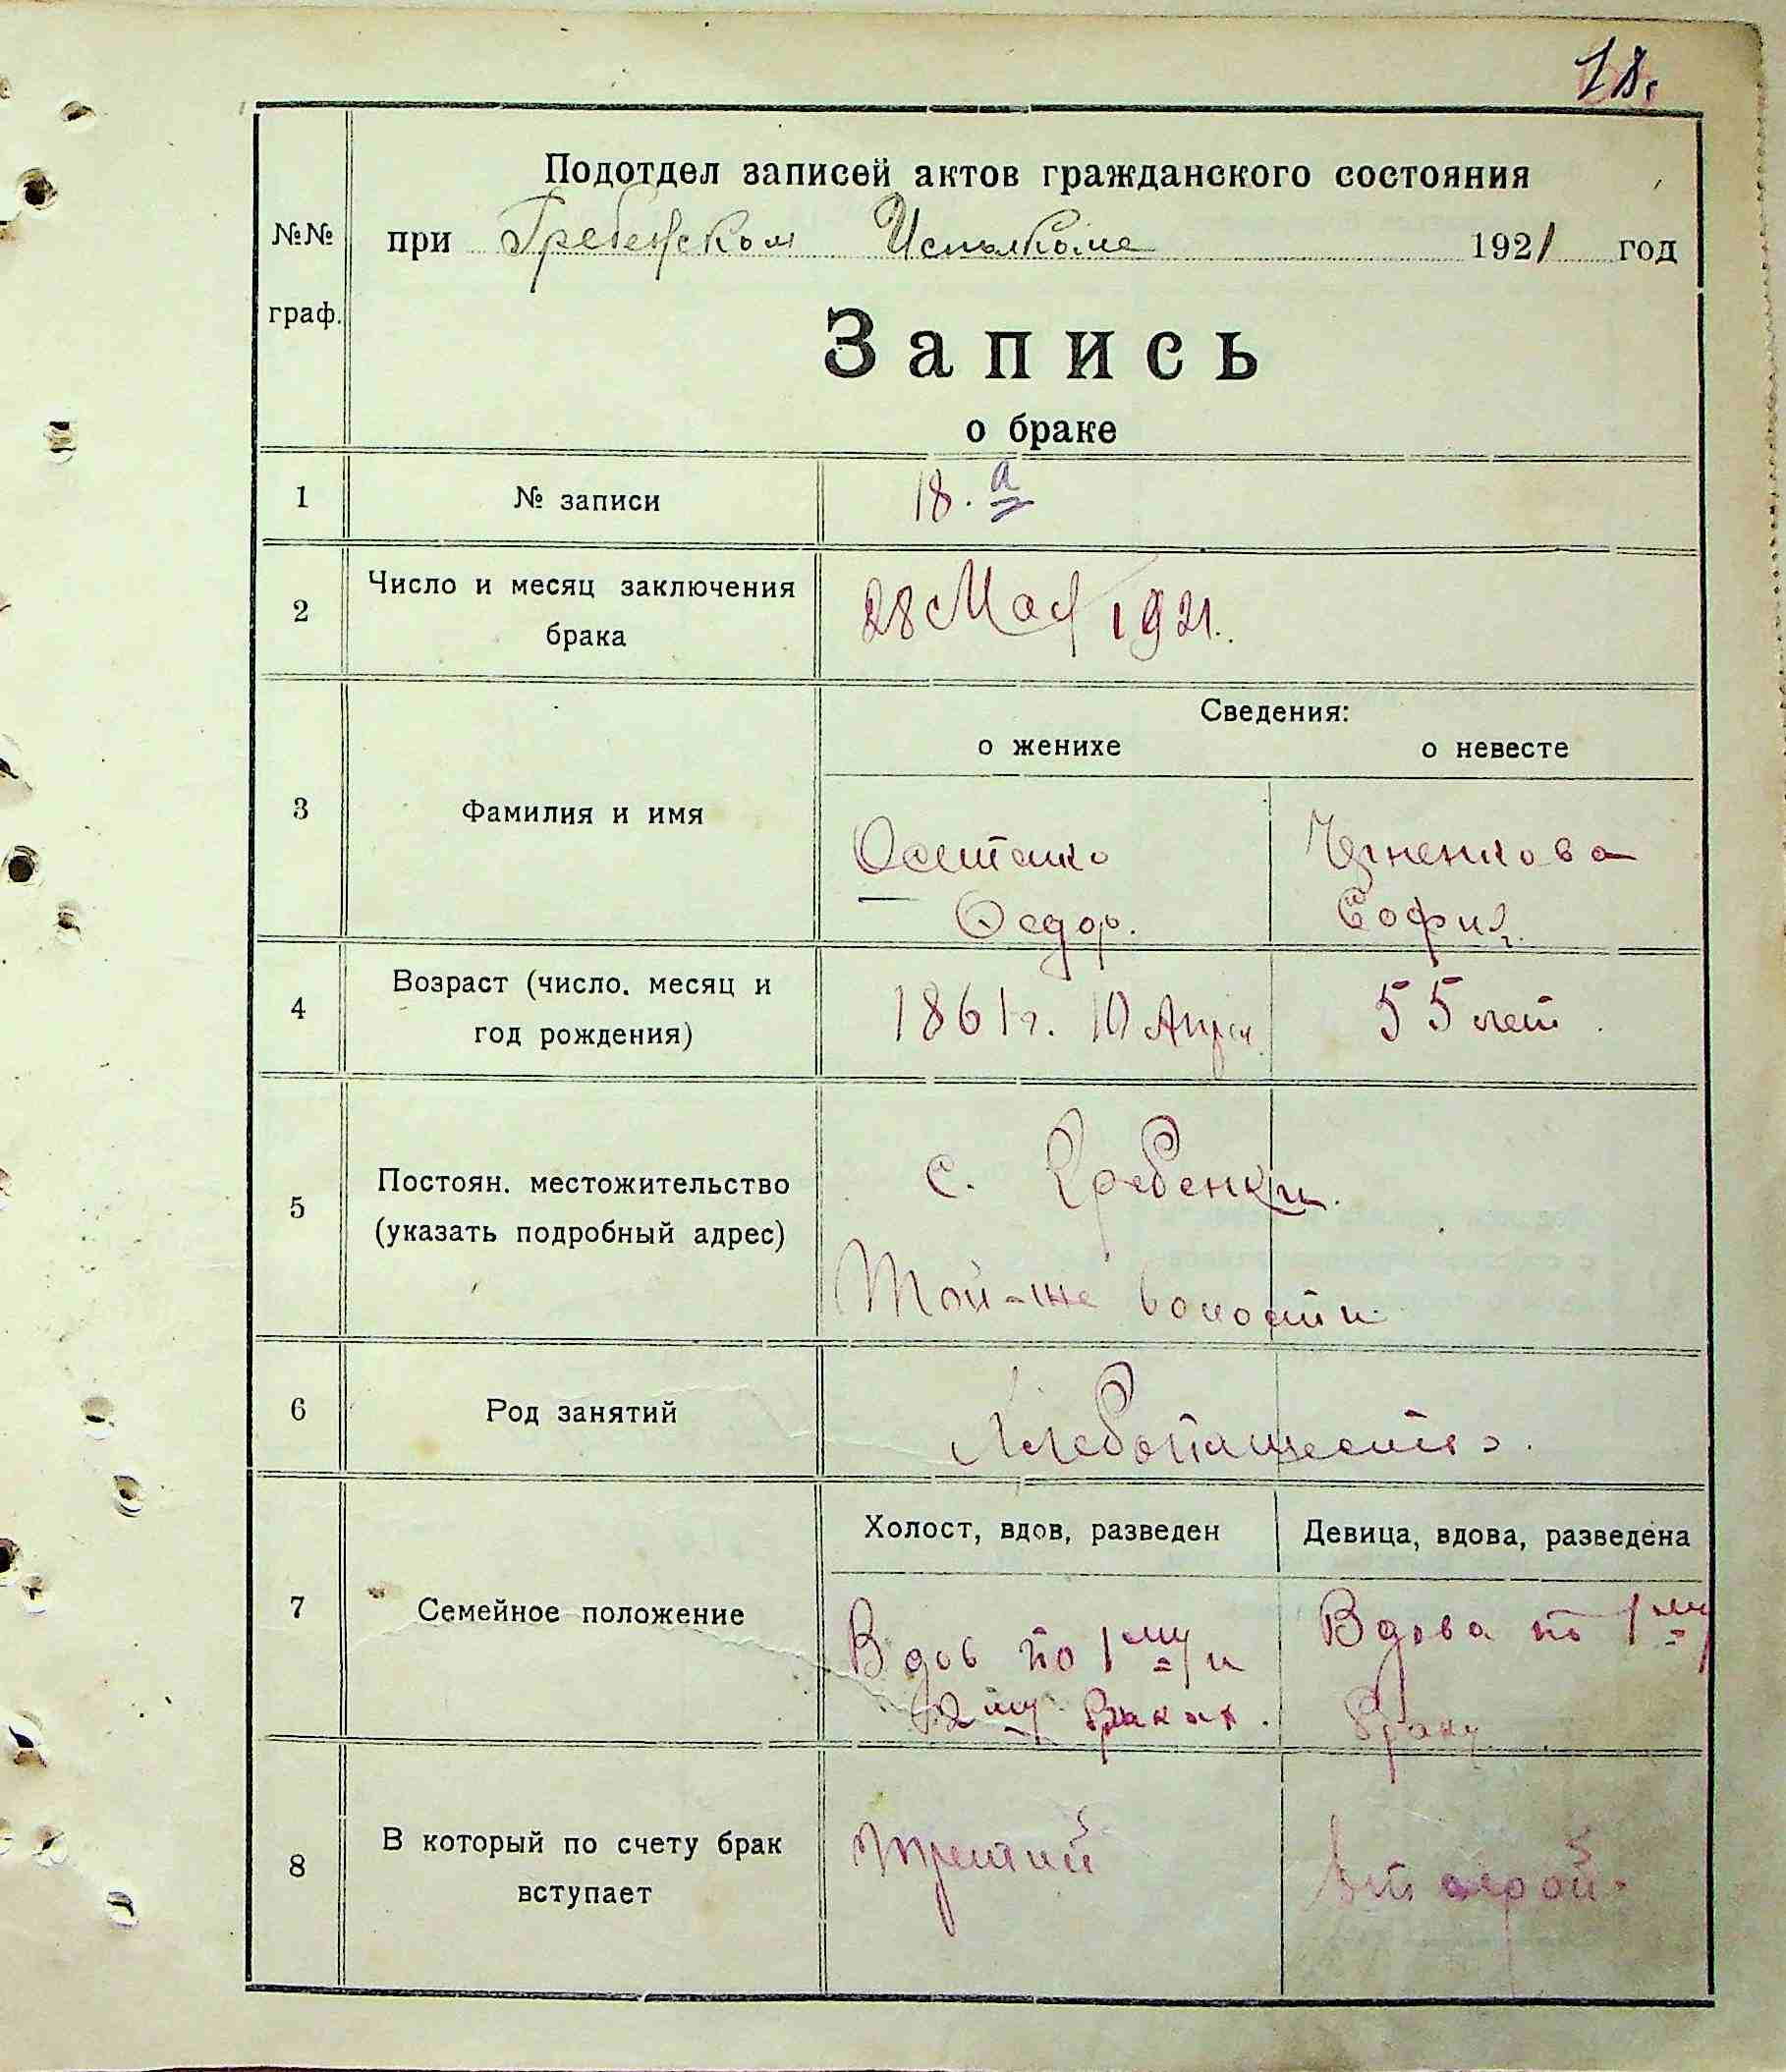 18.
Подотдел записей актов гражданского состояния
№№ граф.
при Гребенском Исполкоме 1921 год
Запись
о браке
1 № записи 18. а
2 Число и месяц заключения брака 28 Мая 1921.
Сведения:
о женихе о невесте
3 Фамилия и имя
Федор. София
4 Возраст (число. месяц и год рождения) 1861 г. 10 Апрел 55 лет.
5 Постоян. местожительство (указать подробный адрес)
с. Гребенки.
Той-же волости
6 Род занятий Хлебопашество.
Холост, вдов, разведен Девица, вдова, разведена
7 Семейное положение
Вдов по 1му и Вдова по 1му
2му браках. браку
8 В который по счету брак вступает третий второй.